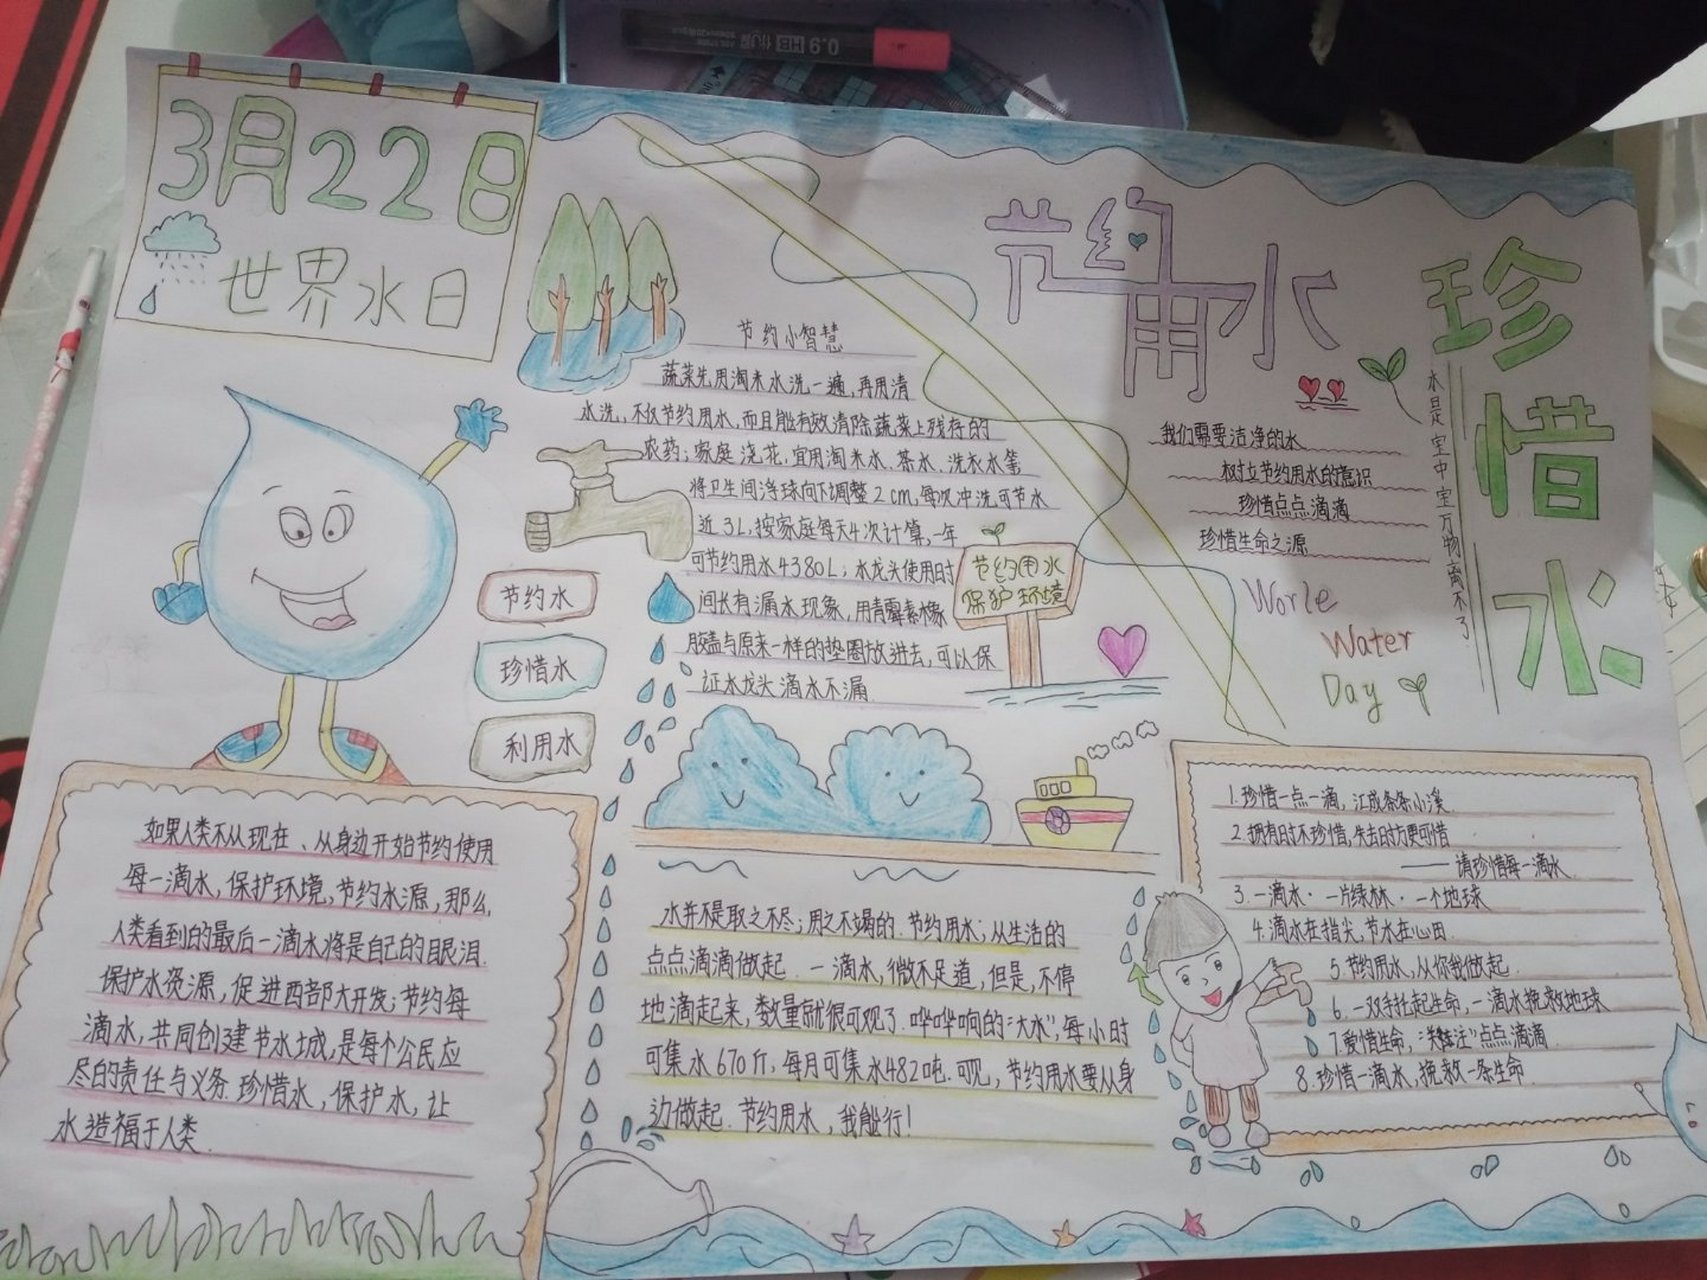 0.9 HB
3月22日
世界水日
节约用水
珍惜水
水是宝中宝万物离不了
节约小智慧
蔬菜先用淘米水洗一遍,再用清
水洗,不仅节约用水,而且能有效清除蔬菜上残存的
农药;家庭浇花,宜用淘米水、茶水、洗衣水等
将卫生间浮球向下调整2cm,每次冲洗可节水
近3L,按家庭每天4次计算,一年
可节约用水4380L;水龙头使用时
间长有漏水现象,用青霉素橡
胶盖与原来一样的垫圈放进去,可以保
证水龙头滴水不漏
节约用水
保护环境
我们需要洁净的水
树立节约用水的意识
珍惜点点滴滴
珍惜生命之源
Worle
Water
Day
节约水
珍惜水
利用水
如果人类不从现在、从身边开始节约使用
每一滴水,保护环境,节约水源,那么,
人类看到的最后一滴水将是自己的眼泪.
保护水资源,促进西部大开发;节约每
滴水,共同创建节水城,是每个公民应
尽的责任与义务.珍惜水,保护水,让
水造福于人类.
水并不是取之不尽;用之不竭的.节约用水;从生活的
点点滴滴做起.一滴水,微不足道,但是,不停
地滴起来,数量就很可观了.哗哗响的"大水",每小时
可集水670斤,每月可集水482吨.可见,节约用水要从身
边做起.节约用水,我能行!
1.珍惜一点一滴,汇成条条小溪.
2.拥有时不珍惜,失去时方更可惜
——请珍惜每一滴水.
3.一滴水·一片绿林·一个地球
4.滴水在指尖,节水在心田.
5.节约用水,从你我做起.
6.一双手托起生命,一滴水挽救地球
7.爱惜生命,"关注"点点滴滴.
8.珍惜一滴水,挽救一条生命.